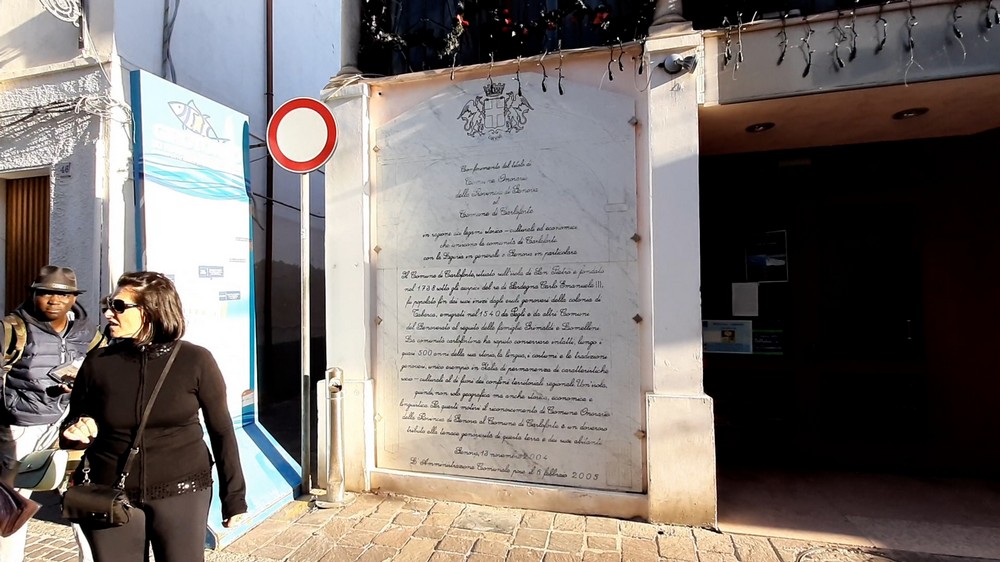 Conferimento del titolo di
Comune Onorario
della Provincia di Genova
al
Comune di Carloforte
in ragione dei legami storico-culturali ed economici
che uniscono la comunità di Carloforte
con la Liguria in generale e Genova in particolare
Il Comune di Carloforte, situato sull'isola di San Pietro e fondato
nel 1738 sotto gli auspici del re di Sardegna Carlo Emanuele III,
fu popolato fin dai suoi inizi dagli esuli genovesi della colonia di
Tabarca, emigrati nel 1540 da Pegli e da altri Comuni
del Genovesato al seguito delle famiglie Grimaldi e Lomellini.
La comunità carlofortina ha saputo conservare intatti, lungo i
quasi 500 anni della sua storia, la lingua, i costumi e le tradizioni
genovesi, unico esempio in Italia di permanenza di caratteristiche
socio-culturali al di fuori dei confini territoriali regionali. Un'isola,
quindi, non solo geografica ma anche storica, economica e
linguistica. Per questi motivi il riconoscimento di Comune Onorario
della Provincia di Genova al Comune di Carloforte è un doveroso
tributo alla tenace genovesità di questa terra e dei suoi abitanti.
Genova, 13 novembre 2004
L'Amministrazione Comunale pose il 8 febbraio 2005